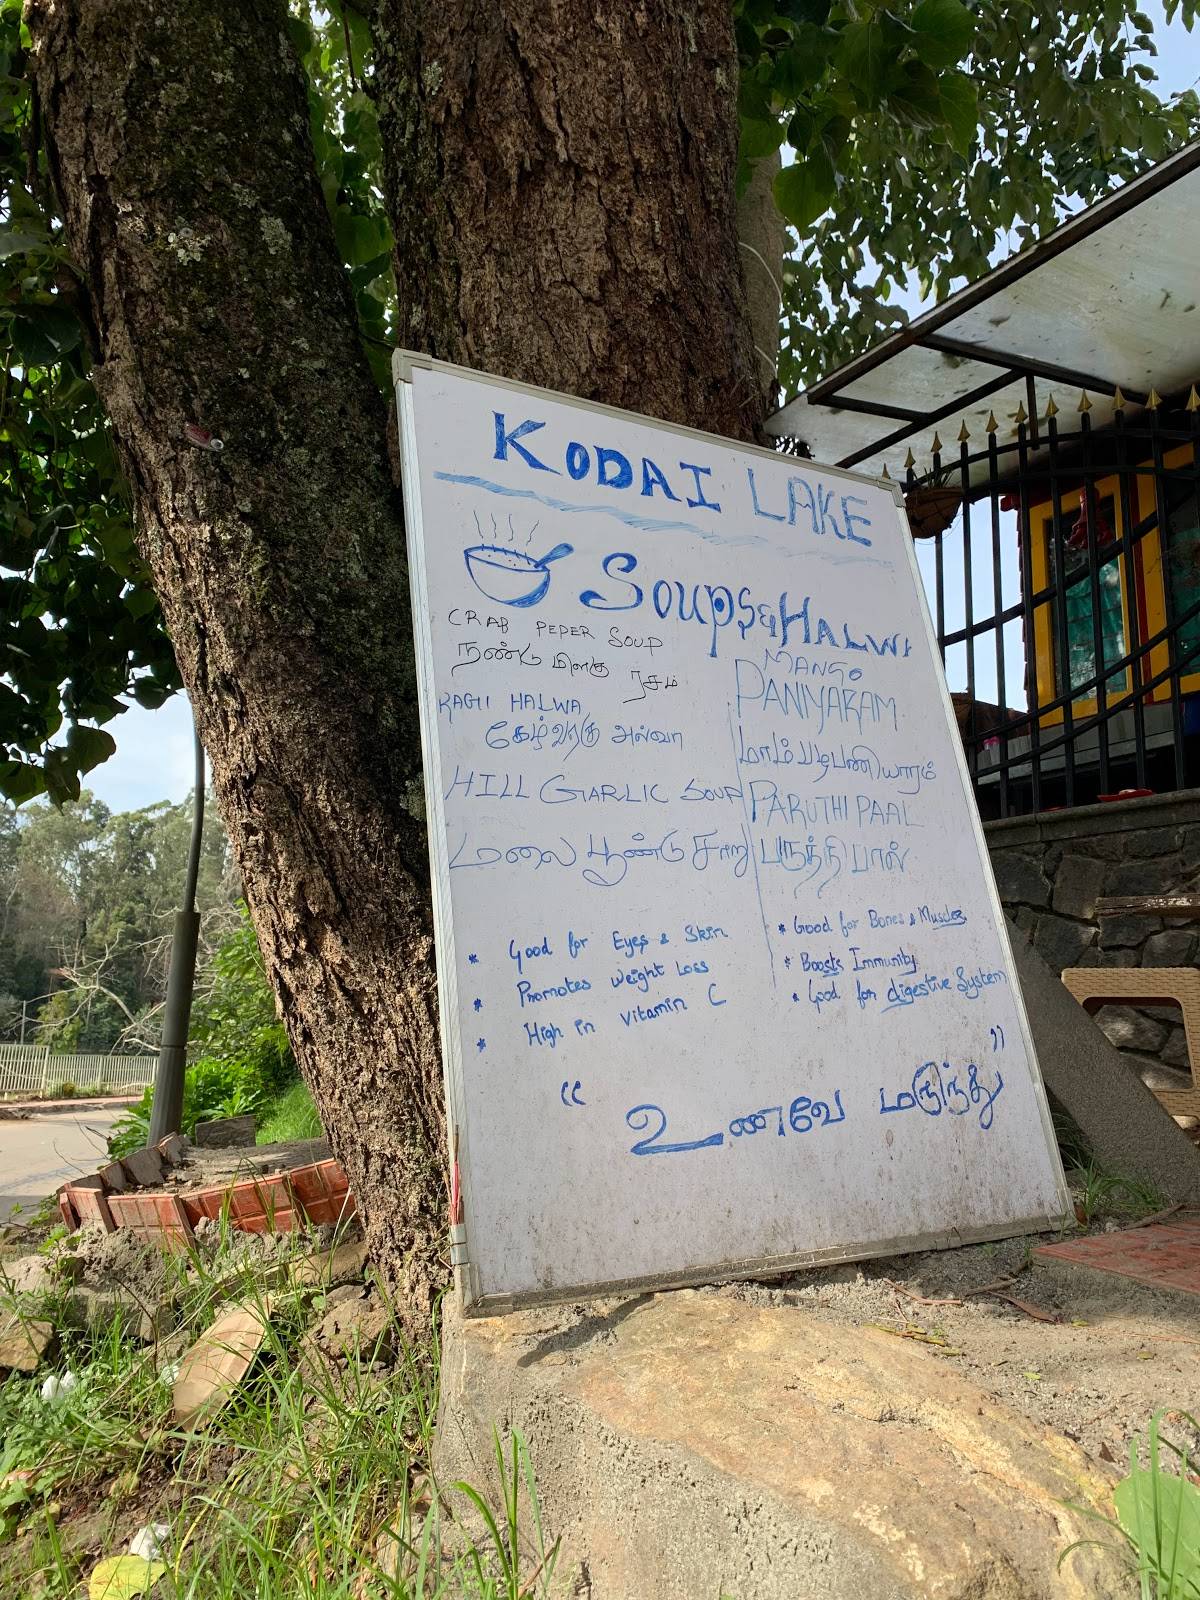 KODAI LAKE
Soups & HALWA
CRAB PEPER SOUP
நண்டு மிளகு ரசம்
RAGII HALWA
கேழ்வரகு அல்வா
HILL GARLIC SOUP
மலை பூண்டு சாறு
MANGO
PANIYARAM
மாம்பழபணியாரம்
PARUTHI PAAL
பருத்தி பால்
* Good for Eyes & Skin
* Promotes weight Loss
* High in vitamin C
* Good for Bones & Muscles
* Boosts Immunity
* Good for digestive System
“ உணவே மருந்து ”